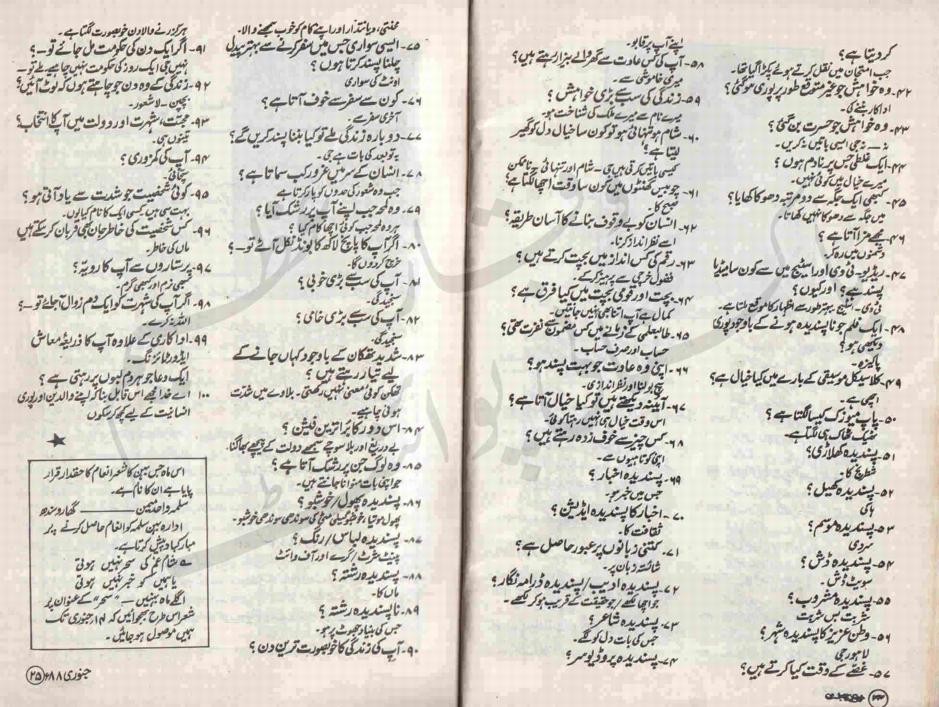 کر دیتا ہے؟
جب امتحان میں نقل کرتے ہوئے پکڑا گیا تھا۔
۴۲۔ وہ خواہش جو غیر متوقع طور پر پوری ہو گئی؟
اداکار بننے کی
۴۳۔ وہ خواہش جو حسرت بن گئی؟
نہ — نہ جی ایسی باتیں نہ کریں۔
۴۴۔ ایک غلطی جس پر نادم ہوں؟
میرے خیال میں کوئی نہیں۔
۴۵۔ کبھی ایک جگہ سے دو مرتبہ دھوکا کھایا؟
میں جگہ سے دھوکا نہیں کھاتا۔
۴۶۔ مجھے مزا آتا ہے؟
دشمنوں میں رہ کر
۴۷۔ ریڈیو۔ ٹی وی اور اسٹیج میں سے کون سا میڈیا
پسند ہے؟ اور کیوں؟
ٹی وی۔ اسٹیج۔ بہتر طور سے اظہار کا موقع ملتا ہے۔
۴۸۔ ایک فلم جو ناپسندیدہ ہونے کے باوجود پوری
دیکھی ہو؟
پاکیزہ۔
۴۹۔ کلاسیکل موسیقی کے بارے میں کیا خیال ہے؟
اچھی ہے۔
۵۰۔ پاپ میوزک کیسا لگتا ہے؟
ٹھیک ٹھاک ہی لگتا ہے۔
۵۱۔ پسندیدہ کھلاڑی؟
شطرنج کا۔
۵۲۔ پسندیدہ کھیل؟
ہاکی
۵۳۔ پسندیدہ موسم؟
سردی
۵۴۔ پسندیدہ ڈش؟
سویٹ ڈش۔
۵۵۔ پسندیدہ مشروب؟
شربت میں شربت
۵۶۔ وطن عزیز کا پسندیدہ شہر؟
لاہور جی
۵۷۔ غصے کے وقت کیا کرتے ہیں؟
اپنے آپ پر قابو۔
۵۸۔ آپ کی کس عادت سے گھر والے بیزار رہتے ہیں؟
میری خاموشی سے۔
۵۹۔ زندگی کی سب سے بڑی خواہش؟
میرے نام سے میرے ملک کی شناخت ہو۔
۶۰۔ شام ہو تنہائی ہو تو کون سا خیال دل کو گھیر
لیتا ہے؟
کیسی باتیں کرتی ہیں جی۔ شام اور تنہائی۔ ناممکن
۶۱۔ چوبیس گھنٹوں میں کون سا وقت اچھا لگتا ہے؟
صبح کا۔
۶۲۔ انسان کو بے وقوف بنانے کا آسان طریقہ؟
اسے نظر انداز کرنا۔
۶۳۔ رقم کی کس انداز میں بچت کرتے ہیں؟
فضول خرچی سے پرہیز کر کے۔
۶۴۔ بچت اور قومی بچت میں کیا فرق ہے؟
کمال ہے آپ اتنا بھی نہیں جانتیں۔
۶۵۔ طالبعلمی کے زمانے میں کس مضمون سے نفرت تھی؟
حساب اور صرف حساب۔
۶۶۔ اپنی وہ عادت جو بہت پسند ہو؟
سچ بولنا اور نظر اندازی۔
۶۷۔ آئینہ دیکھتے ہیں تو کیا خیال آتا ہے؟
اس وقت خیال ہی نہیں رہتا کوئی۔
۶۸۔ کس چیز سے خوف زدہ رہتے ہیں؟
اپنی کوتاہیوں سے۔
۶۹۔ پسندیدہ اخبار؟
جس میں خبر ہو۔
۷۰۔ اخبار کا پسندیدہ ایڈیشن؟
ثقافت کا۔
۷۱۔ کتنی زبانوں پر عبور حاصل ہے؟
شائستہ زبان پر۔
۷۲۔ پسندیدہ ادیب / پسندیدہ ڈرامہ نگار؟
جو اچھا لکھے / جو حقیقت کے قریب ہو کر لکھے۔
۷۳۔ پسندیدہ شاعر؟
جس کی بات دل کو لگے۔
۷۴۔ پسندیدہ پروڈیوسر؟
محنتی، دیانتدار اور اپنے کام کو خوب سمجھنے والا۔
۷۵۔ ایسی سواری جس میں سفر کرنے سے بہتر پیدل
چلنا پسند کرتا ہوں؟
اونٹ کی سواری
۷۶۔ کون سے سفر سے خوف آتا ہے؟
آخری سفر سے۔
۷۷۔ دوبارہ زندگی ملے تو کیا بننا پسند کریں گے؟
یہ تو بعد کی بات ہے جی۔
۷۸۔ انسان کے سر میں غرور کب سماتا ہے؟
جب وہ شعور کی حدوں کو پار کرتا ہے
۷۹۔ وہ لمحہ جب اپنے آپ پر رشک آیا؟
ہر وہ لمحہ جب کوئی اچھا کام کیا
۸۰۔ اگر آپ کا پانچ لاکھ کا بونڈ نکل آئے تو۔؟
خرچ کر دوں گا۔
۸۱۔ آپ کی سب سے بڑی خوبی؟
سنجیدگی۔
۸۲۔ آپ کی سب سے بڑی خامی؟
سنجیدگی۔
۸۳۔ شدید تھکان کے باوجود کہاں جانے کے
لیے تیار رہتے ہیں؟
تھکن کوئی معنی نہیں رکھتی۔ بلاوے میں شدت
ہونی چاہیے۔
۸۴۔ اس دور کا بدترین فیشن؟
بے دریغ اور بلا سوچے سمجھے دولت کے پیچھے بھاگنا۔
۸۵۔ وہ لوگ جن پر رشک آتا ہے؟
جو اپنی بات منوانا جانتے ہیں۔
۸۶۔ پسندیدہ پھول / خوشبو؟
پھول موتیا، خوشبو گیلی مٹی کی سوندھی سوندھی خوشبو۔
۸۷۔ پسندیدہ لباس / رنگ؟
پینٹ شرٹ / گرے اور آف وائٹ
۸۸۔ پسندیدہ رشتہ؟
ماں کا
۸۹۔ ناپسندیدہ رشتہ؟
جس کی بنیاد جھوٹ پر ہو۔
۹۰۔ آپ کی زندگی کا خوبصورت ترین دن؟
ہر گزرنے والا دن خوبصورت لگتا ہے۔
۹۱۔ اگر ایک دن کی حکومت مل جائے تو۔؟
نہیں جی ایک روز کی حکومت نہیں چاہیے ملے تو۔
۹۲۔ زندگی کے وہ دن جو چاہتے ہوں کہ لوٹ آئیں؟
بچپن۔ لاشعور۔
۹۳۔ محبت، شہرت اور دولت میں آپ کا انتخاب؟
تینوں ہی۔
۹۴۔ آپ کی کمزوری؟
سچائی۔
۹۵۔ کوئی شخصیت جو شدت سے یاد آتی ہو؟
بہت سی ہیں۔ کسی ایک کا نام کیا لوں۔
۹۶۔ کس شخصیت کی خاطر جان بھی قربان کر سکتے ہیں
ماں کی خاطر۔
۹۷۔ پرستاروں سے آپ کا رویہ؟
کبھی نرم اور کبھی گرم۔
۹۸۔ اگر آپ کی شہرت کو ایک دم زوال آجائے تو۔؟
اللہ نہ کرے۔
۹۹۔ اداکاری کے علاوہ آپ کا ذریعہ معاش
ایڈورٹائزنگ۔
ایک دعا جو ہر دم لبوں پر رہتی ہے؟
۱۰۰ اے خدا مجھے اس قابل بنا کہ اپنے والدین اور پوری
انسانیت کے لیے کچھ کر سکوں
اس ماہ جس بہن کا شعر انعام کا حقدار قرار
پایا ہے ان کا نام ہے۔
سلمہ واحد بہن گھارو سندھ
ادارہ بہن سلمہ کو انعام حاصل کرنے پر
مبارکباد پیش کرتا ہے۔
شام غم کی سحر نہیں ہوتی
یا ہمیں کو خبر نہیں ہوتی
اگلے ماہ بہنیں — "سحر" کے عنوان پر
شعر اس طرح بھجوائیں کہ ۱۴ جنوری تک
ہمیں موصول ہو جائیں۔
جنوری ۸۸ء ۲۵